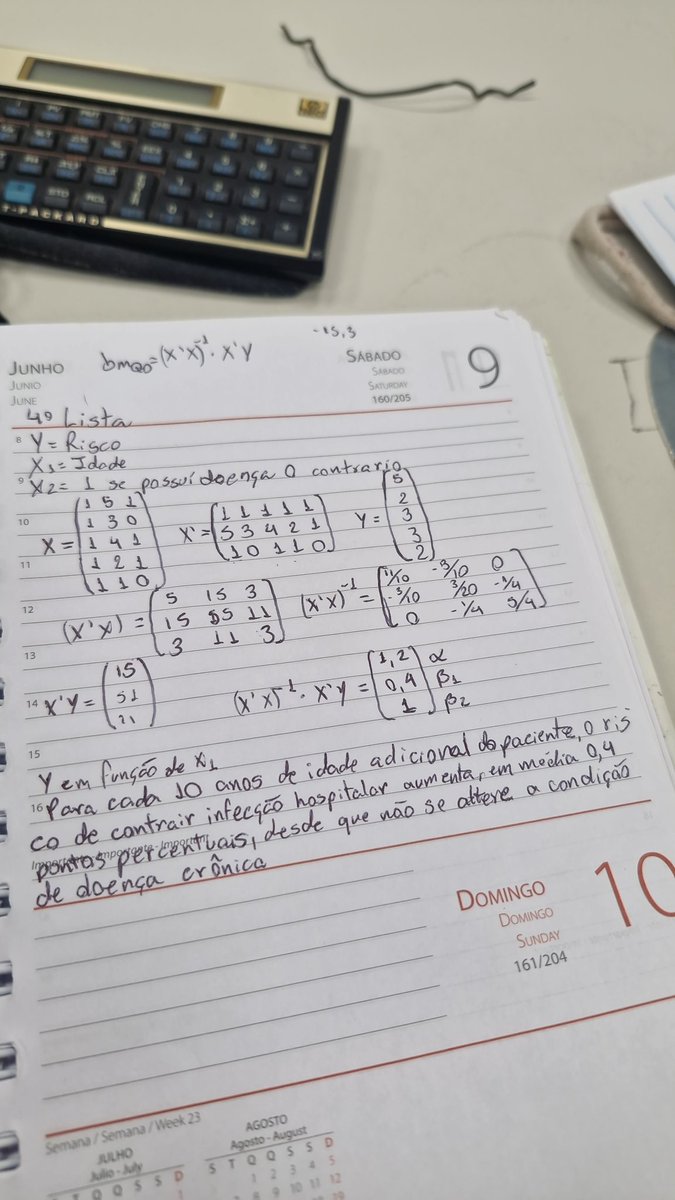 T-PACKARD
hp
STO
RCL
JUNHO
JUNIO
JUNE
bmqo=(X'X)⁻¹. X'Y
-15,3
SÁBADO
SÁBADO
SATURDAY
160/205
9
4º Lista
8 Y = Risco
X₁= Idade
9 X2= 1 se possuí doença 0 contrario
10
11
X = (1 5 1
1 3 0
1 4 1
1 2 1
1 1 0)
X' = (1 1 1 1 1
5 3 4 2 1
1 0 1 1 0)
Y = (5
2
3
3
2)
12
(X'X) = (5 15 3
15 55 11
3 11 3)
(X'X)⁻¹ = (11/10 -3/10 0
-3/10 3/20 -1/4
0 -1/4 5/4)
13
14 X'Y = (15
51
11)
(X'X)⁻¹. X'Y = (1,2 α
0,4 β₁
1 β₂)
15
Y em função de X₁
16 Para cada 10 anos de idade adicional do paciente, o ris
co de contrair infecção hospitalar aumenta, em média 0,4
pontos percentuais, desde que não se altere a condição
de doença crônica
DOMINGO
DOMINGO
SUNDAY
161/204
10
Semana / Semana / Week 23
JULHO
Julio - July
D Q Q S S D
AGOSTO
Agosto - August
S T Q Q S S D
1 2 3 4 5
8 9 10 11 12